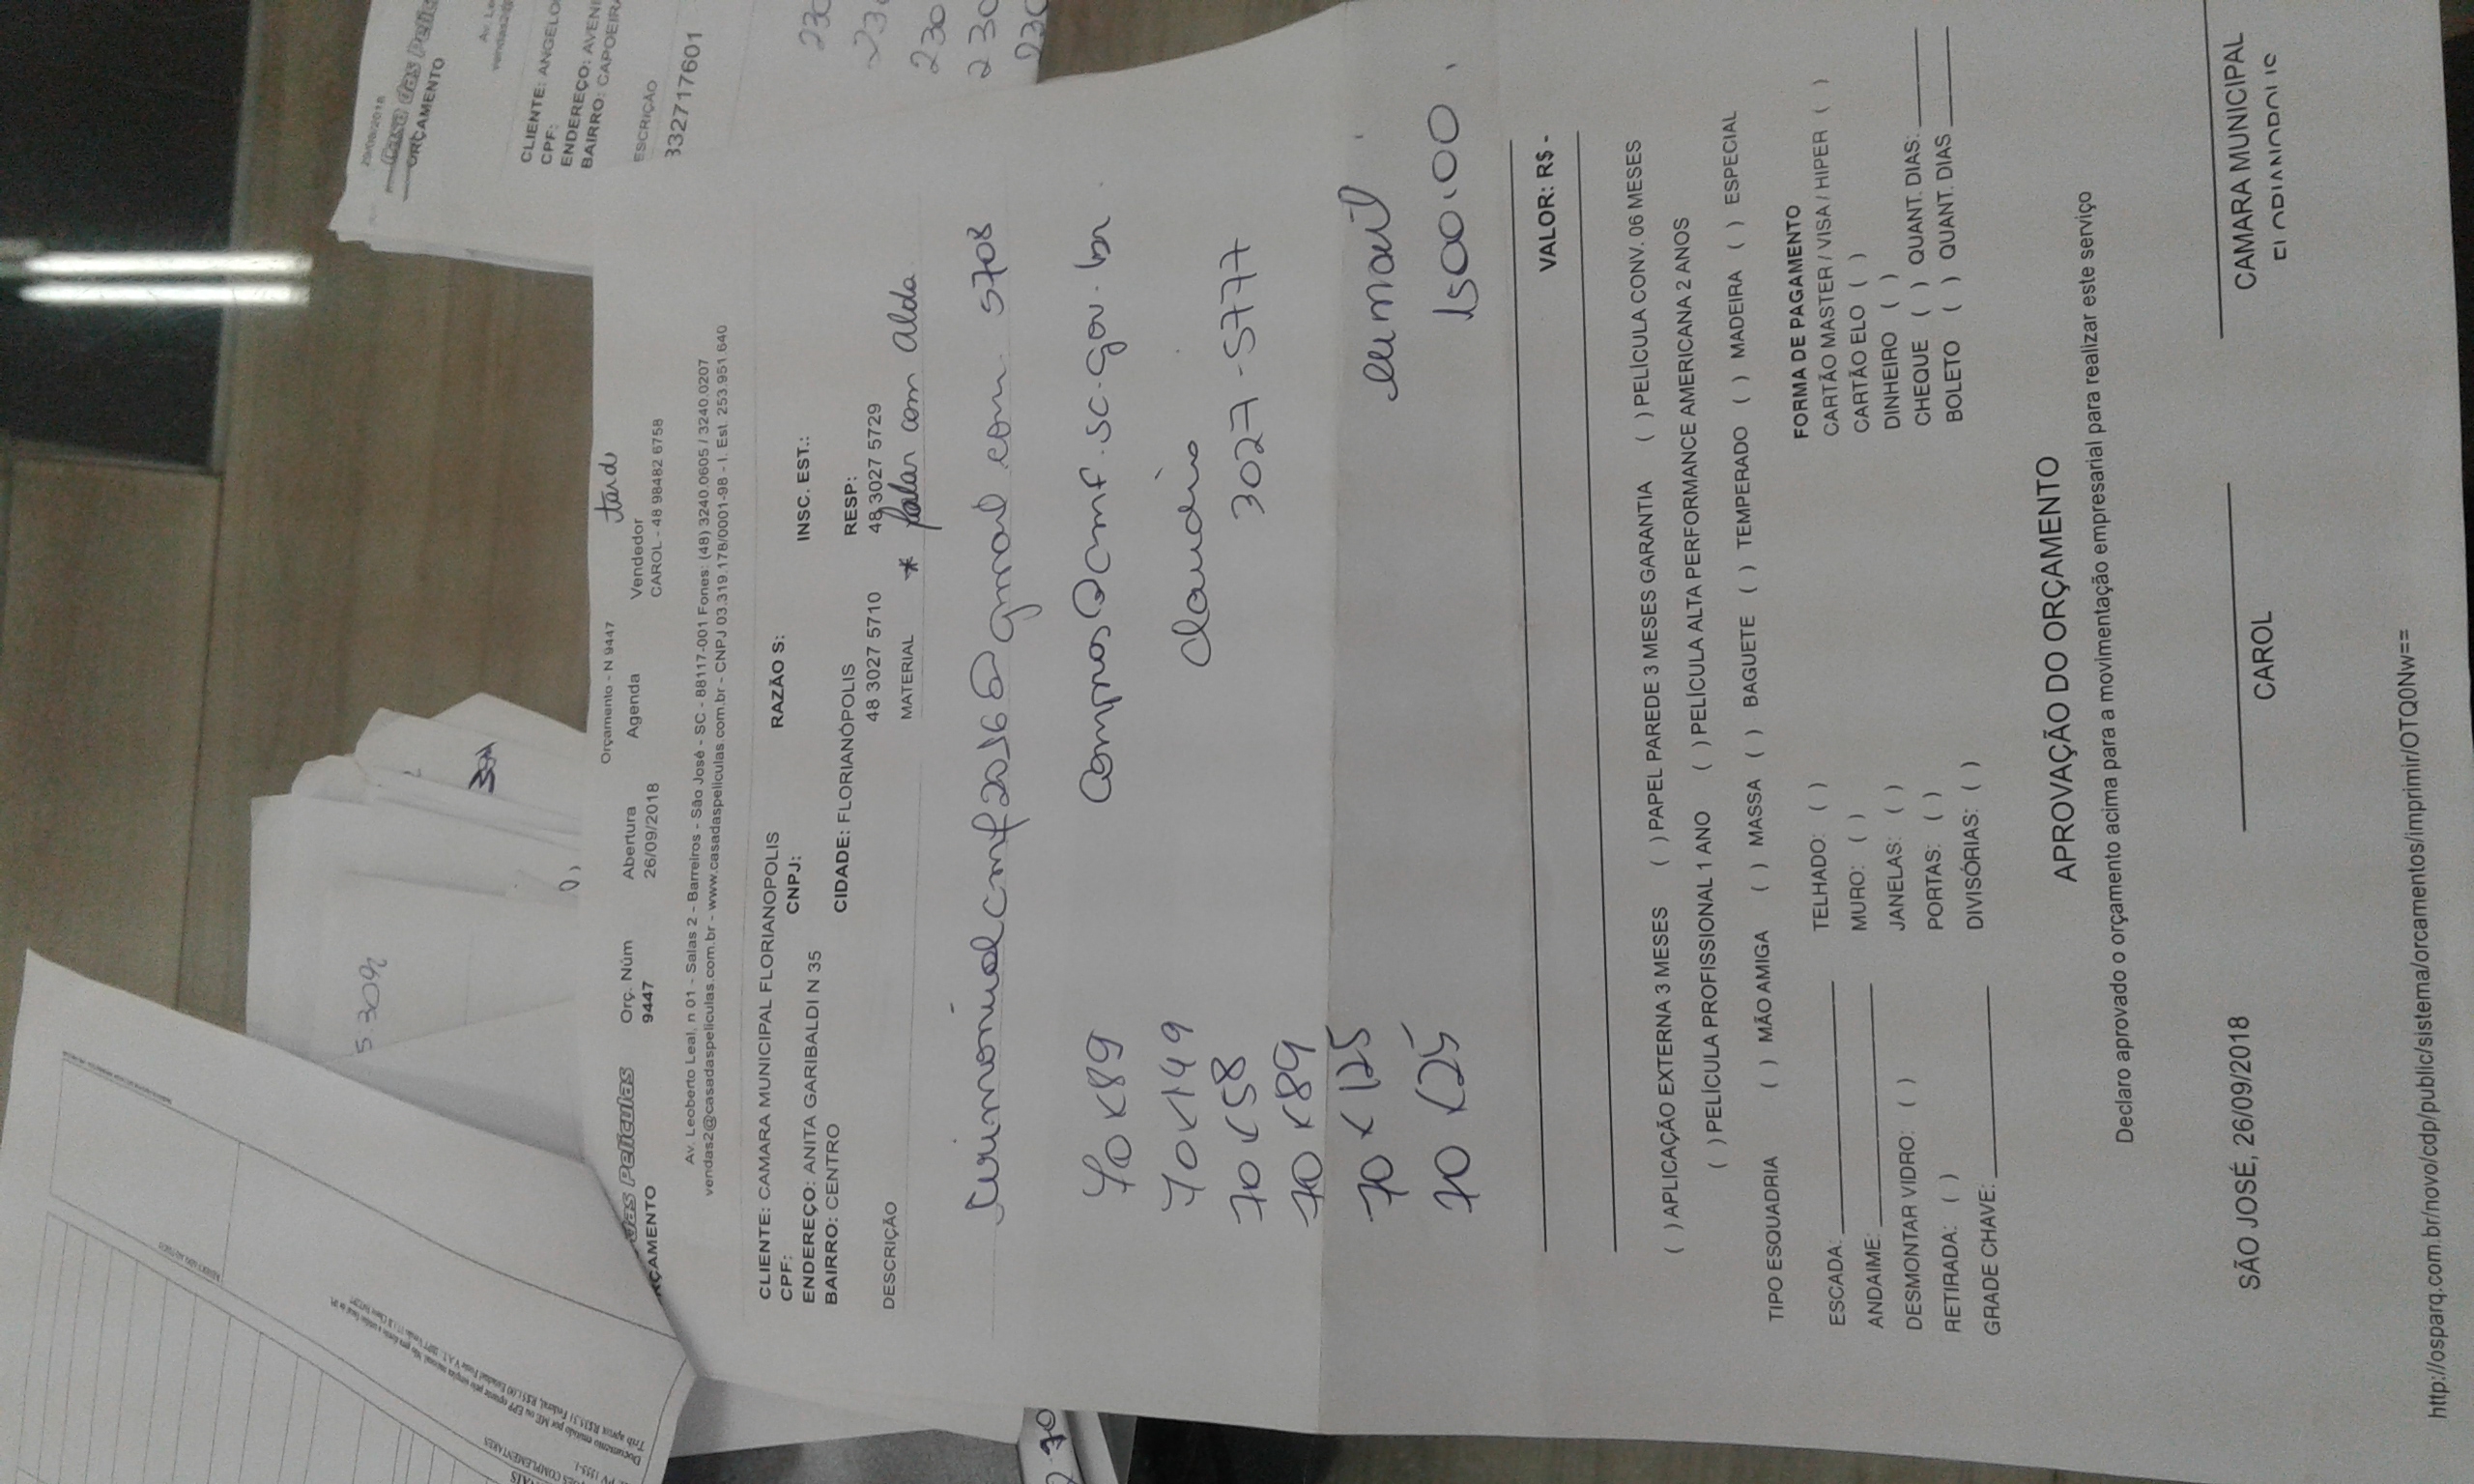 Orçamento - N 9447
das Películas
RÇAMENTO
Orç. Núm
9447
Abertura
26/09/2018
Agenda
Vendedor
CAROL - 48 98482 6758
tarde
Av. Leoberto Leal, n 01 - Salas 2 - Barreiros - São José - SC - 88117-001 Fones: (48) 3240.0605 / 3240.0207
vendas2@casadaspeliculas.com.br - www.casadaspeliculas.com.br - CNPJ 03.319.178/0001-98 - I. Est. 253.951.640
CLIENTE: CAMARA MUNICIPAL FLORIANOPOLIS RAZÃO S:
CPF: CNPJ: INSC. EST.:
ENDEREÇO: ANITA GARIBALDI N 35
BAIRRO: CENTRO CIDADE: FLORIANÓPOLIS RESP:
48 3027 5710 48 3027 5729
DESCRIÇÃO MATERIAL * falar com alda
cmf2016@gmail.com 5708
70 x 89 compras@cmf.sc.gov.br
70 x 149 Claudio
70 x 58 3027-5777
70 x 89
70 x 125
70 x 125 1500,00
VALOR: R$ -
( ) APLICAÇÃO EXTERNA 3 MESES ( ) PAPEL PAREDE 3 MESES GARANTIA ( ) PELÍCULA CONV. 06 MESES
( ) PELÍCULA PROFISSIONAL 1 ANO ( ) PELÍCULA ALTA PERFORMANCE AMERICANA 2 ANOS
TIPO ESQUADRIA ( ) MÃO AMIGA ( ) MASSA ( ) BAGUETE ( ) TEMPERADO ( ) MADEIRA ( ) ESPECIAL
ESCADA: TELHADO: ( ) FORMA DE PAGAMENTO
ANDAIME: MURO: ( ) CARTÃO MASTER / VISA / HIPER ( )
DESMONTAR VIDRO: ( ) JANELAS: ( ) CARTÃO ELO ( )
RETIRADA: ( ) PORTAS: ( ) DINHEIRO ( )
GRADE CHAVE: DIVISÓRIAS: ( ) CHEQUE ( ) QUANT. DIAS:
BOLETO ( ) QUANT. DIAS
APROVAÇÃO DO ORÇAMENTO
Declaro aprovado o orçamento acima para a movimentação empresarial para realizar este serviço
SÃO JOSÉ, 26/09/2018
CAROL
CAMARA MUNICIPAL
http://osparq.com.br/novo/cdp/public/sistema/orcamentos/imprimir/OTQ0Nw==
ORÇAMENTO
CLIENTE: ANGELO
CPF:
ENDEREÇO: AVENI
BAIRRO: CAPOEIRA
ESCRIÇÃO
332717601
230
230
230